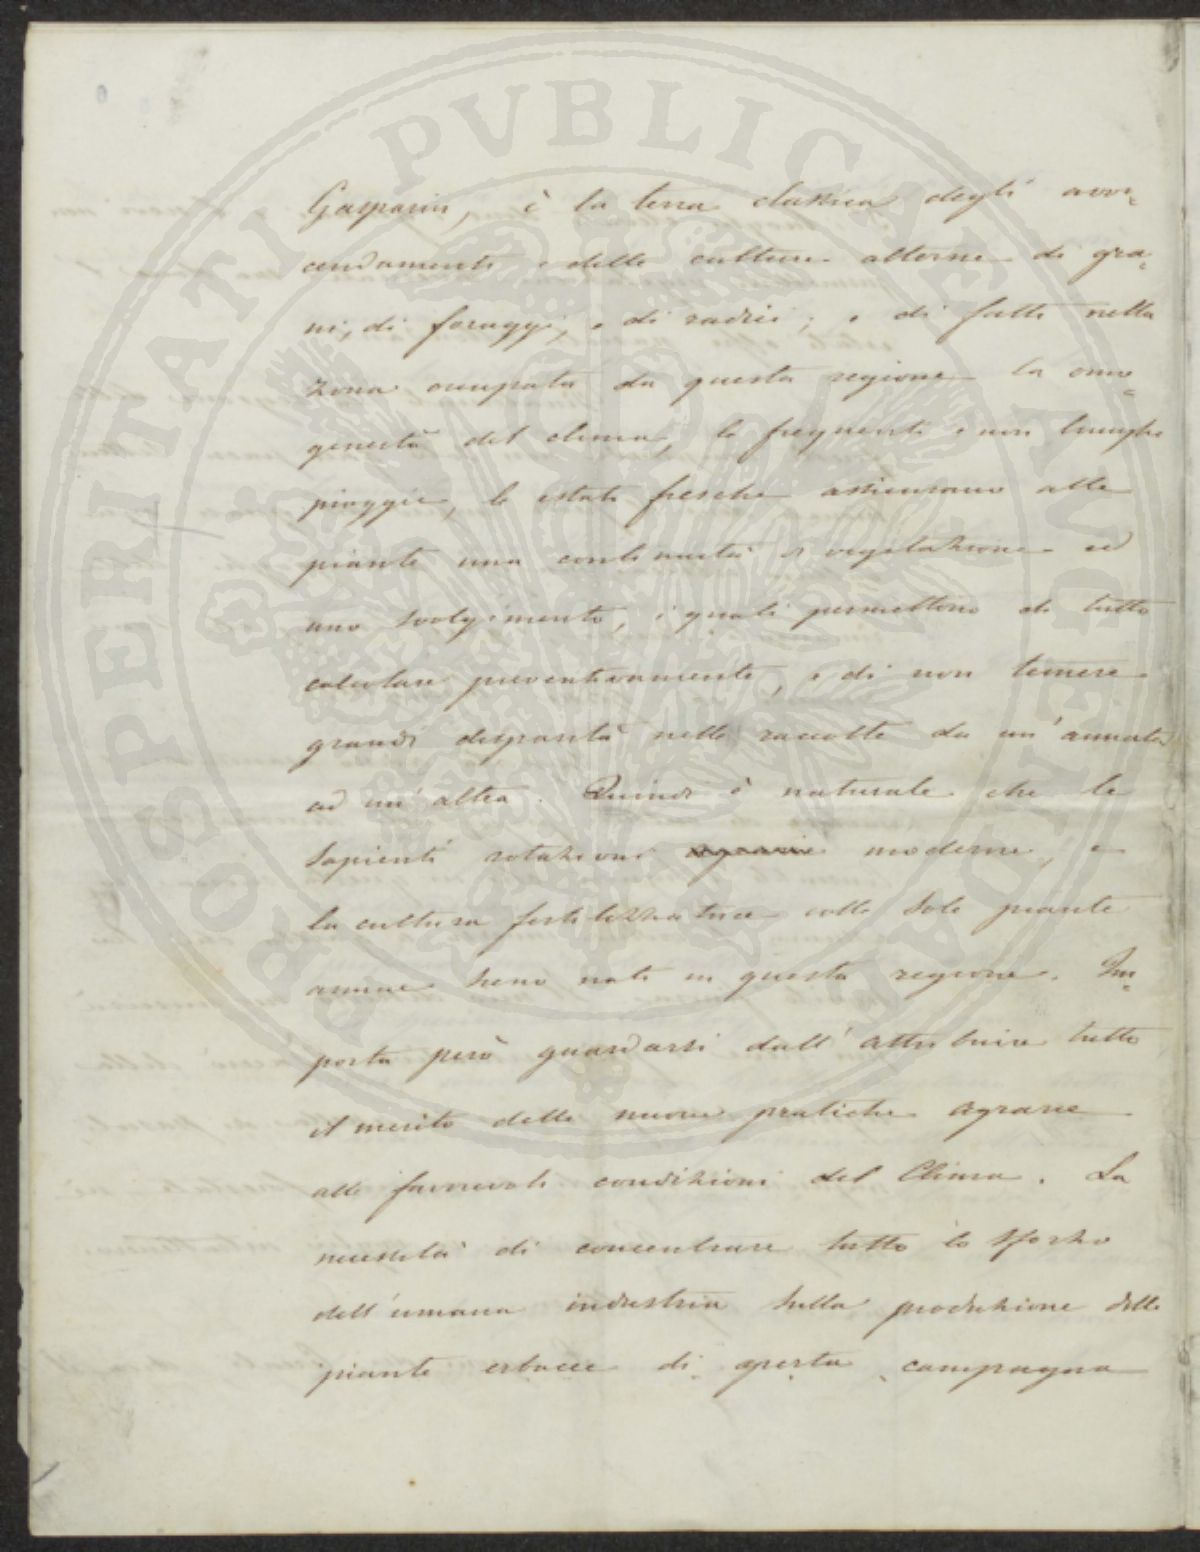 Gasparin, è la terra classica degli avvi-
cendamenti e delle culture alterne di gra-
ni, di foraggi, e di radici; e di fatti nella
zona occupata da questa regione la omo-
geneità del clima, le frequenti e non lunghe
pioggie, le estati fresche assicurano alle
piante una continuità di vegetazione ed
uno svolgimento, i quali permettono di tutto
calcolare preventivamente, e di non temere
grandi disparità nelle raccolte da un'annata
ad un'altra. Quindi è naturale che le
sapienti rotazioni agrarie moderne, e
la cultura fertilizzatrice colle sole piante
annue sieno nate in questa regione. Im-
porta però guardarsi dall'attribuire tutto
il merito delle nuove pratiche agrarie
alle favorevoli condizioni del Clima. La
necessità di concentrare tutto lo sforzo
dell'umana industria sulla produzione delle
piante erbacee di aperta campagna
PROSPERITATI PVBLICAE AVGENDAE